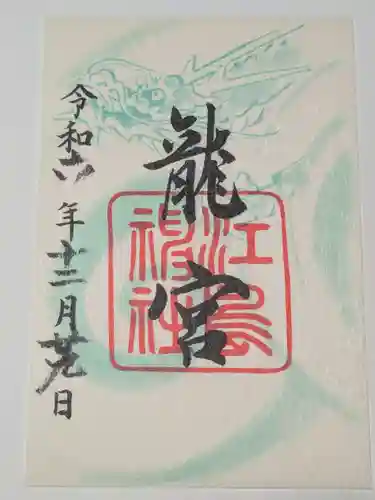 龍宮
江島
神社
令和六年十二月廿九日